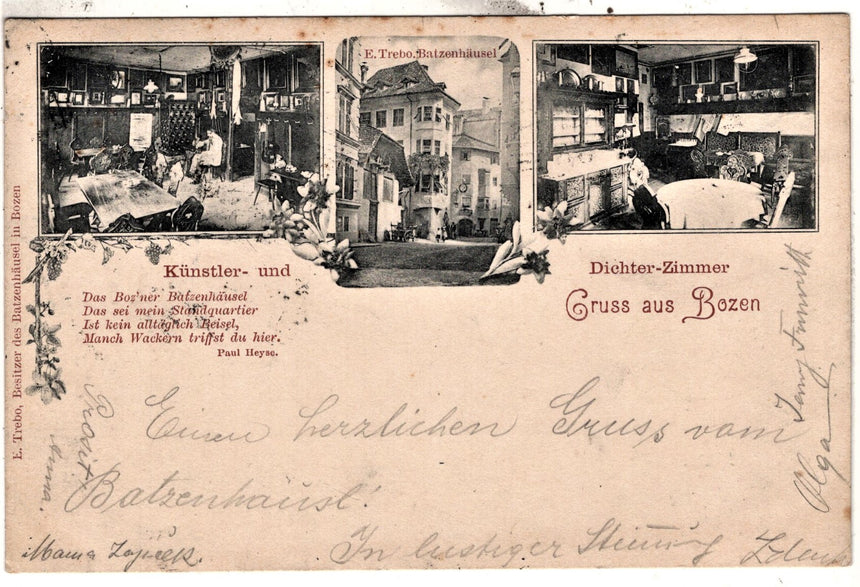 E. Trebo. Batzenhäusel
Künstler- und
Dichter-Zimmer
Gruss aus Bozen
Das Boz'ner Batzenhäusel
Das sei mein Standquartier
Ist kein alltäglich Beisel,
Manch Wackern triffst du hier.
Paul Heyse.
E. Trebo, Besitzer des Batzenhäusel in Bozen
Einen herzlichen Gruss vom
Batzenhäusl!
In lustiger
Prosit
Anna.
Mama
Olga